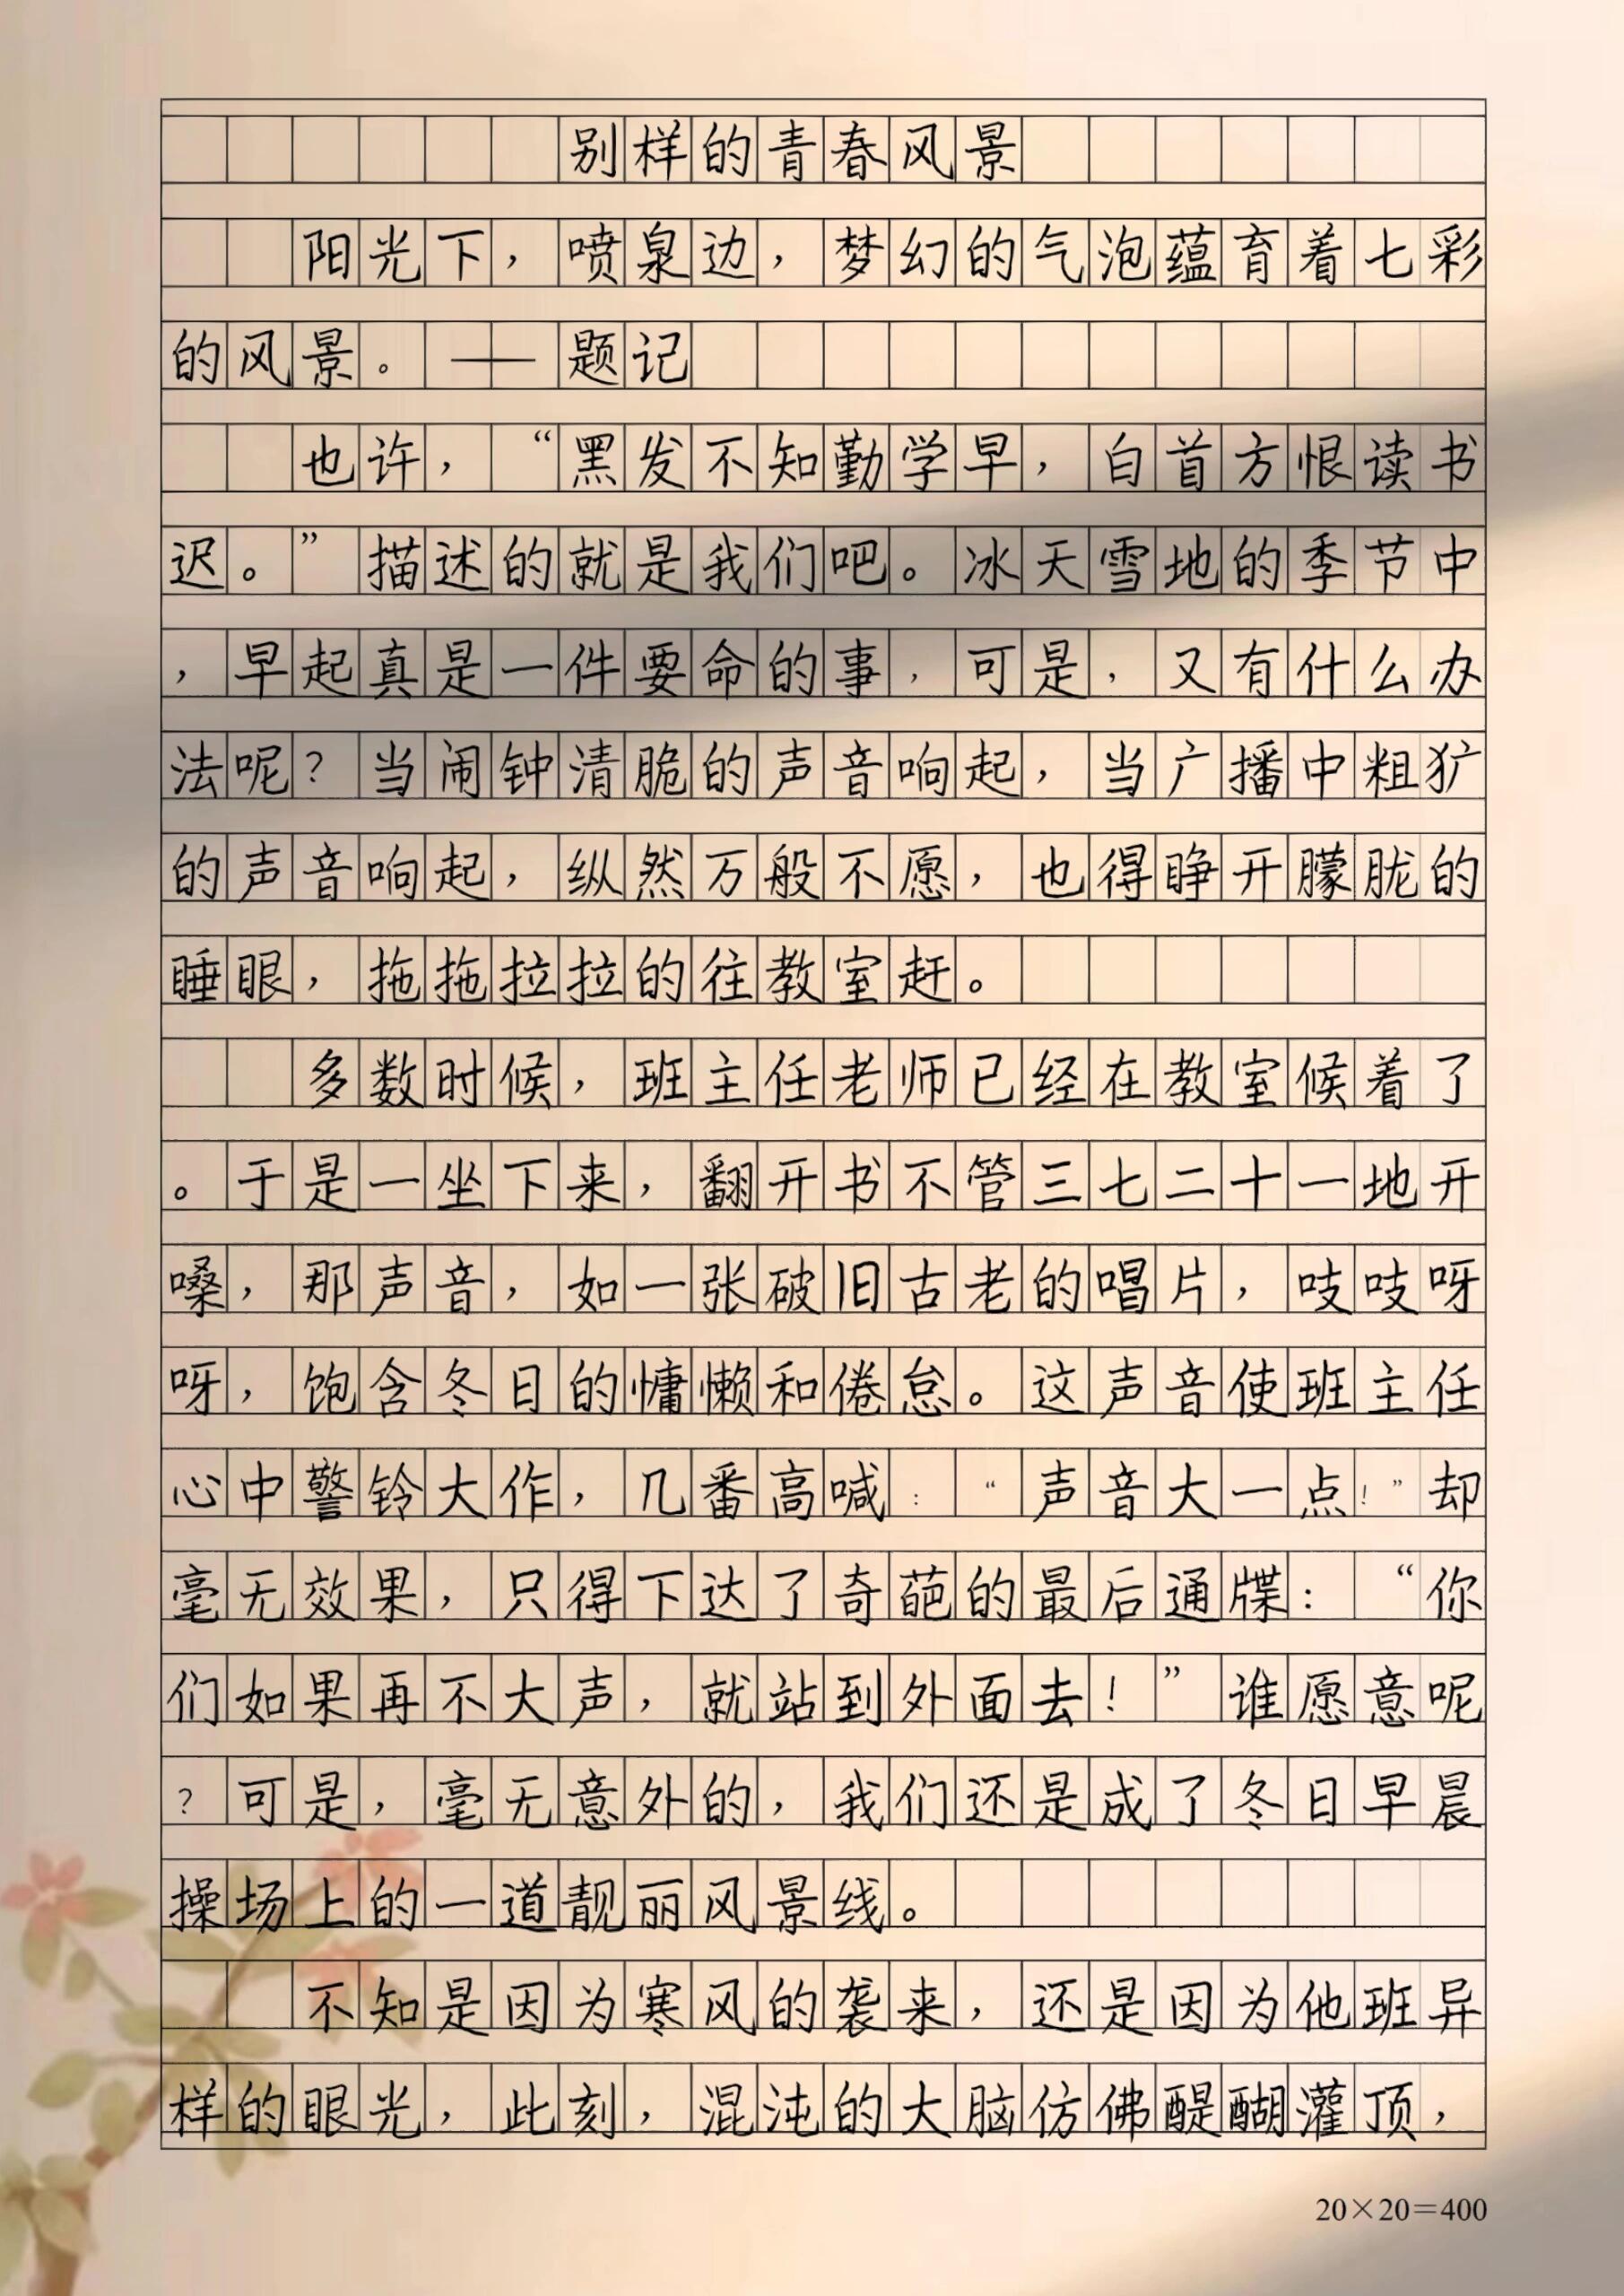 别样的青春风景
阳光下，喷泉边，梦幻的气泡蕴育着七彩
的风景。——题记
也许，“黑发不知勤学早，白首方恨读书
迟。”描述的就是我们吧。冰天雪地的季节中
，早起真是一件要命的事，可是，又有什么办
法呢？当闹钟清脆的声音响起，当广播中粗犷
的声音响起，纵然万般不愿，也得睁开朦胧的
睡眼，拖拖拉拉的往教室赶。
多数时候，班主任老师已经在教室候着了
。于是一坐下来，翻开书不管三七二十一地开
嗓，那声音，如一张破旧古老的唱片，吱吱呀
呀，饱含冬日的慵懒和倦怠。这声音使班主任
心中警铃大作，几番高喊：“声音大一点！”却
毫无效果，只得下达了奇葩的最后通牒：“你
们如果再不大声，就站到外面去！”谁愿意呢
？可是，毫无意外的，我们还是成了冬日早晨
操场上的一道靓丽风景线。
不知是因为寒风的袭来，还是因为他班异
样的眼光，此刻，混沌的大脑仿佛醍醐灌顶，
20×20=400